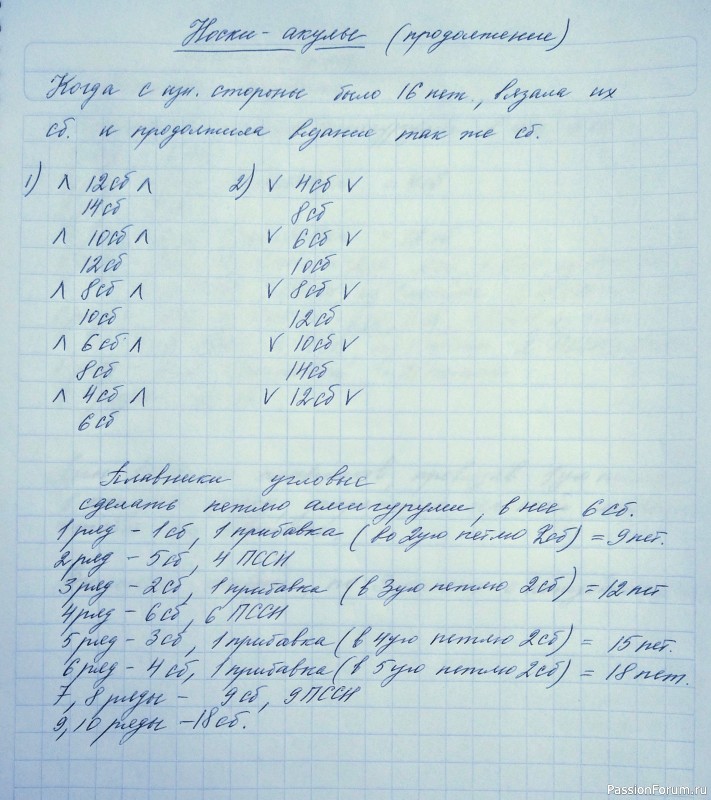 Носки-акулы (продолжение)
Когда с изн. стороны было 16 пет., вязала их
сб. и продолжила вязание так же сб.
1) Λ 12сб Λ 2) V 4сб V
14сб 8сб
Λ 10сб Λ V 6сб V
12сб 10сб
Λ 8сб Λ V 8сб V
10сб 12сб
Λ 6сб Λ V 10сб V
8сб 14сб
Λ 4сб Λ V 12сб V
6сб
Плавники угловые
сделать петлю амигуруми, в нее 6 сб.
1 ряд - 1сб, 1 прибавка (во 2ую петлю 2сб) = 9 пет.
2 ряд - 5сб, 4 ПССН
3 ряд - 2сб, 1 прибавка (в 3ую петлю 2сб) = 12 пет
4 ряд - 6сб, 6 ПССН
5 ряд - 3сб, 1 прибавка (в 4ую петлю 2сб) = 15 пет.
6 ряд - 4сб, 1 прибавка (в 5ую петлю 2сб) = 18 пет.
7, 8 ряды - 9сб, 9 ПССН
9, 10 ряды - 18сб.
PassionForum.ru